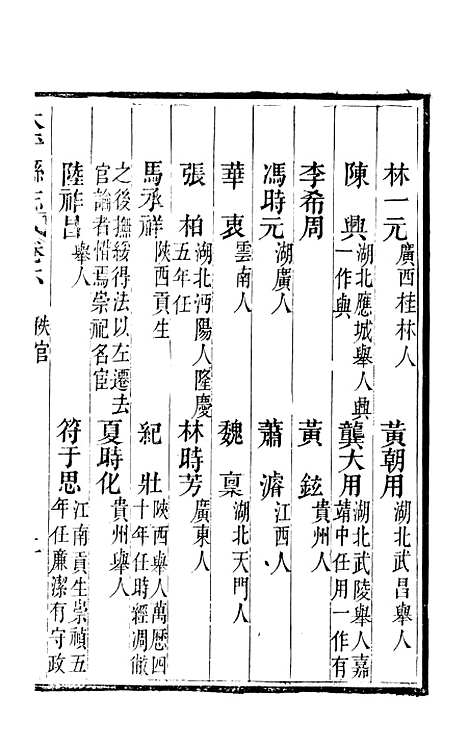 林一元 廣西桂林人 黃朝用 湖北武昌舉人
陳興 湖北應城舉人興一作與 龔大用 湖北武陵舉人嘉靖中任用一作有
李希周 黃鉉 貴州人
馮時元 湖廣人 蕭濬 江西人
華衷 雲南人 魏稟 湖北天門人
張柏 湖北沔陽人隆慶五年任 林時芳 廣東人
馬承祥 陝西貢生 紀壯 陝西舉人萬歷四十年任時經凋
之後撫綏得法以左遷去官論者惜焉崇祀名宦 夏時化 貴州舉人
陸祥昌 舉人 符于思 江南貢生崇禎五年任廉潔有守政
縣志 卷六 秩官